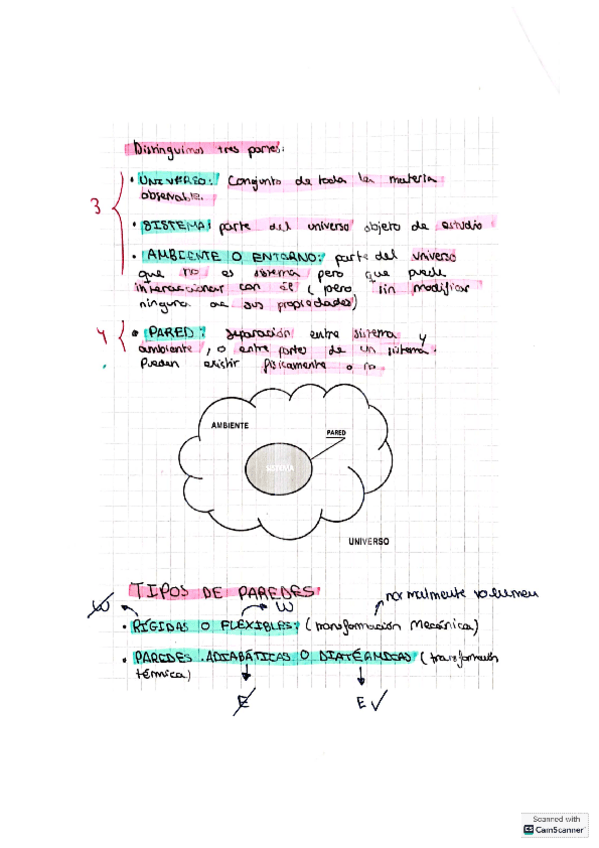 Distinguimos tres partes:
• UNIVERSO: Conjunto de toda la materia
observable.
3
• SISTEMA: parte del universo objeto de estudio
• AMBIENTE O ENTORNO: parte del universo
que no es sistema pero que puede
interaccionar con él (pero sin modificar
ninguna de sus propiedades)
4
• PARED: separación entre sistema y
ambiente, o entre partes de un sistema.
Pueden existir físicamente o no.
AMBIENTE
PARED
SISTEMA
UNIVERSO
TIPOS DE PAREDES:
normalmente volumen
W W
• RÍGIDAS O FLEXIBLES: (transformación mecánica)
• PAREDES ADIABÁTICAS O DIATÉRMICAS (transformación
térmica)
E E✓
Scanned with
CS CamScanner